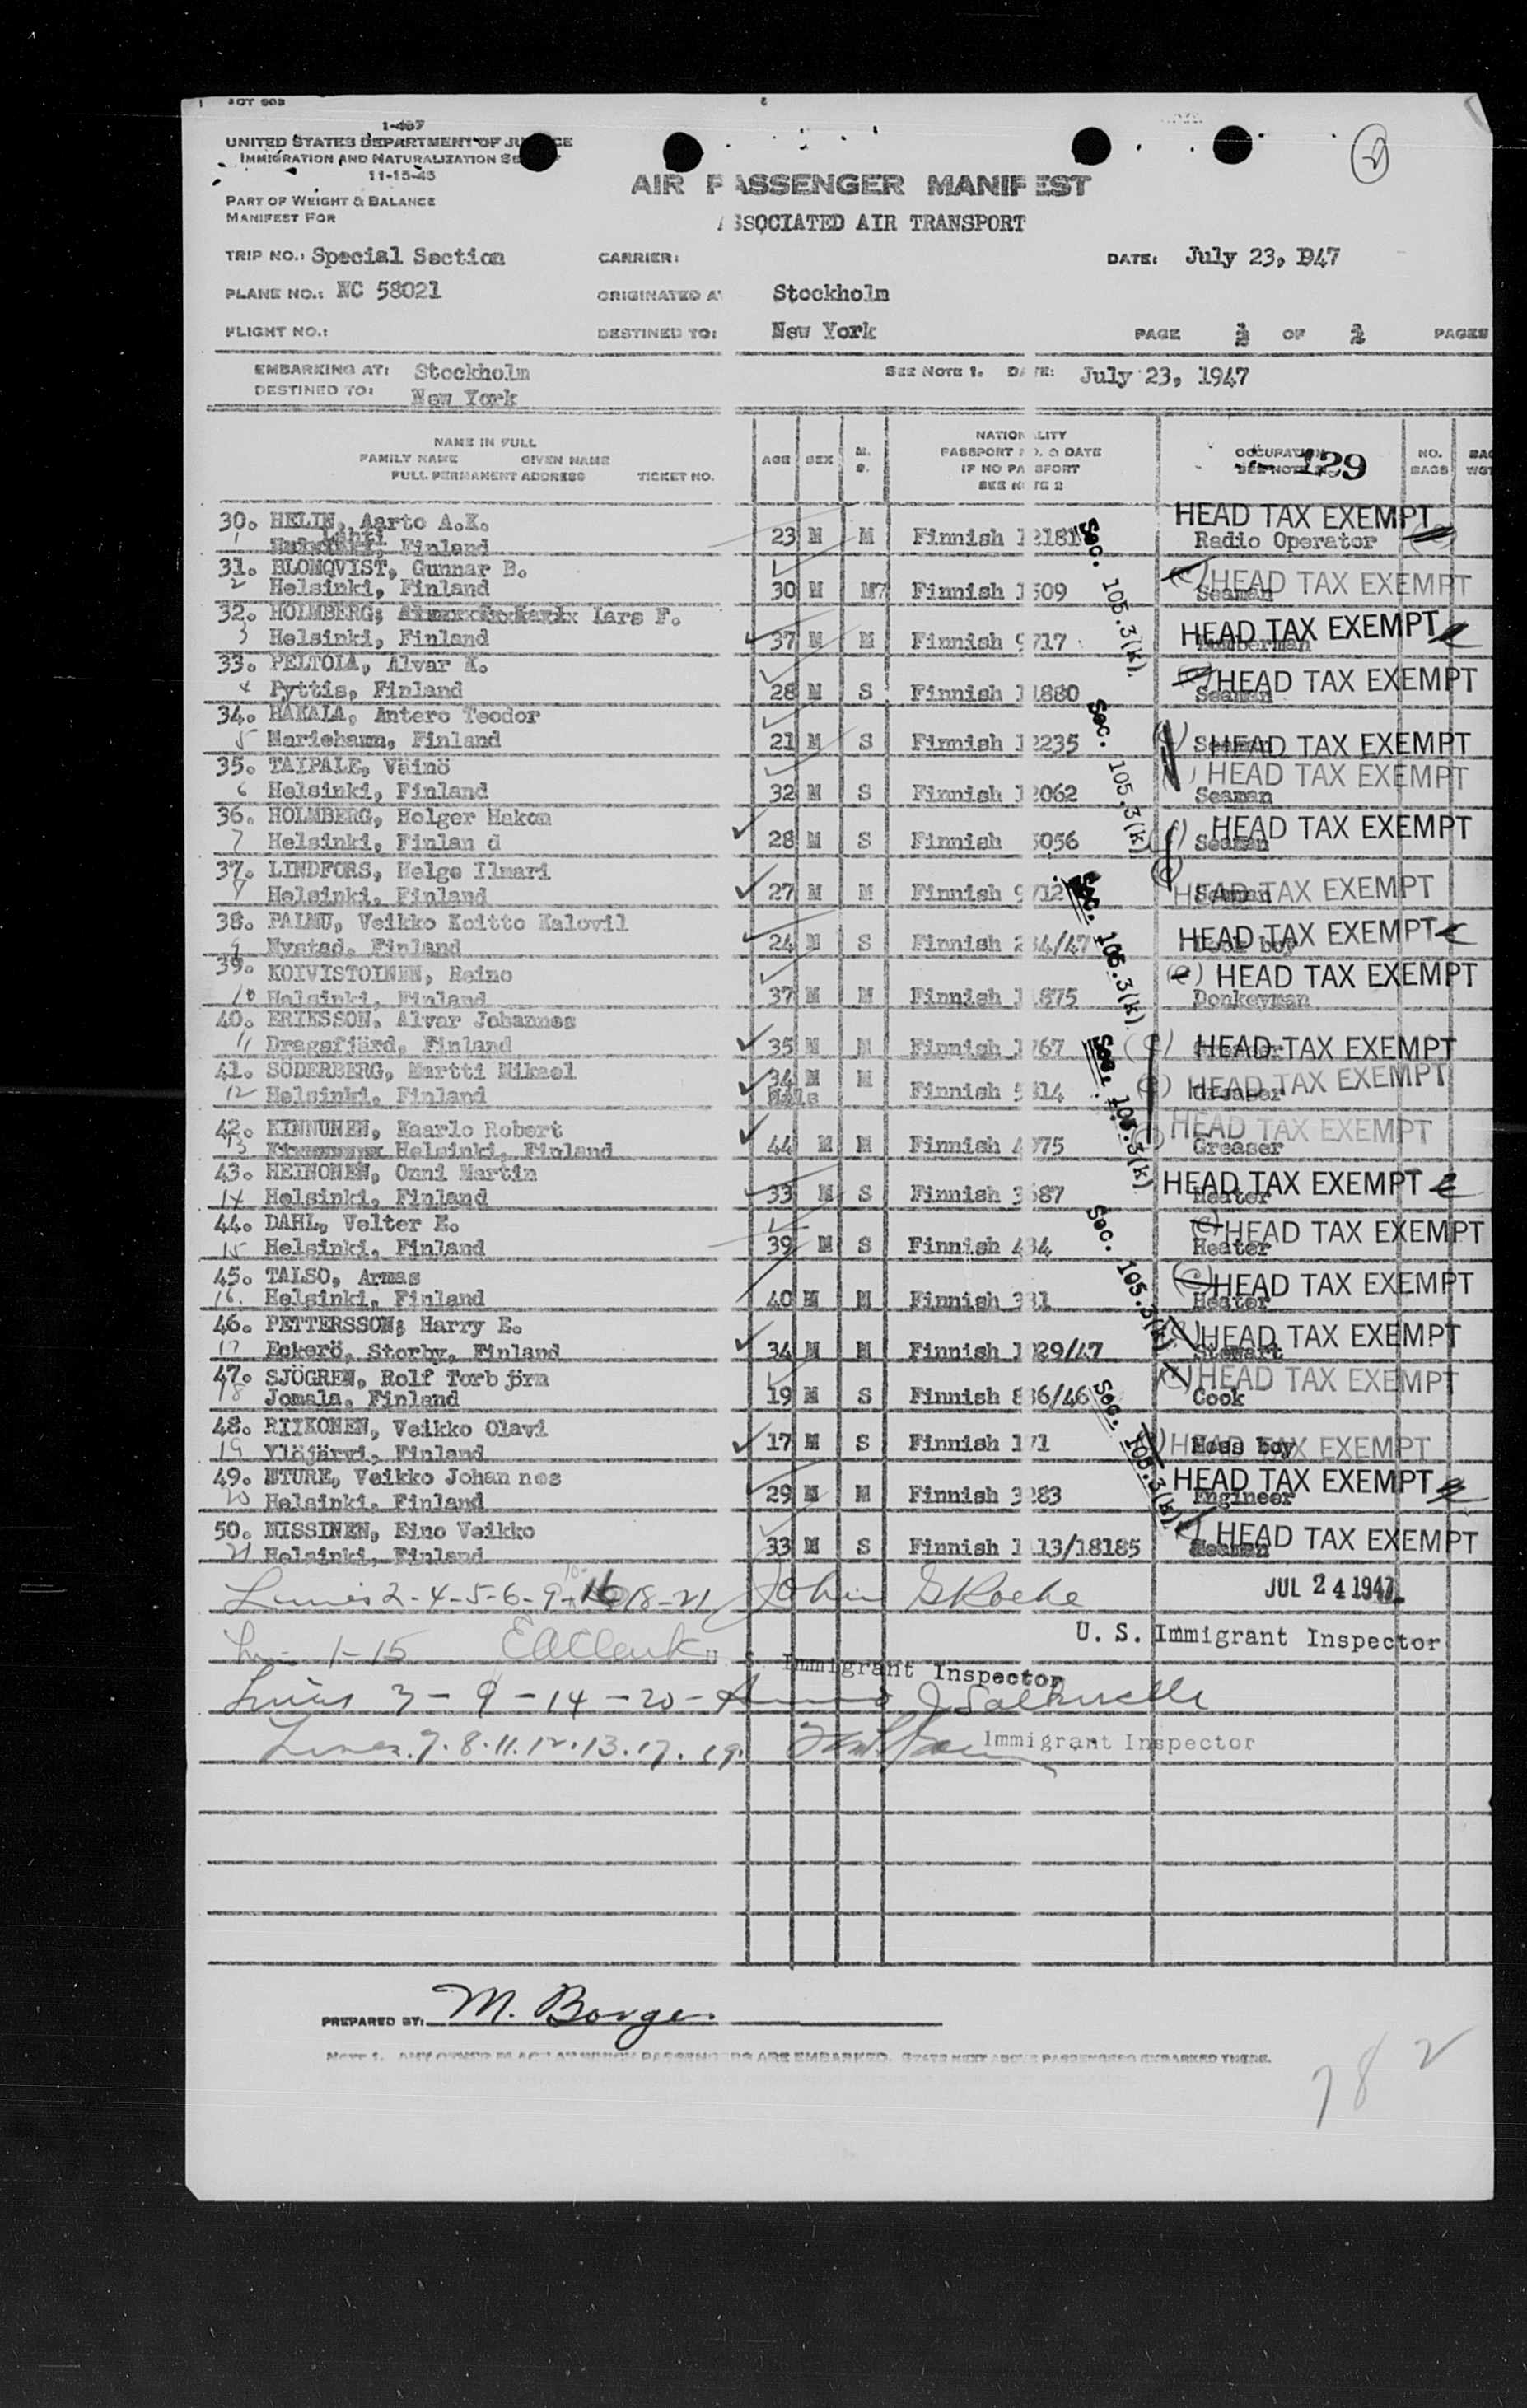 1-467
UNITED STATES DEPARTMENT OF JUSTICE
IMMIGRATION AND NATURALIZATION
11-15-45
PART OF WEIGHT & BALANCE
MANIFEST FOR
AIR PASSENGER MANIFEST
ASSOCIATED AIR TRANSPORT
TRIP NO.: Special Section CARRIER: DATE: July 23, 1947
PLANE NO.: NC 58021 ORIGINATED AT Stockholm
FLIGHT NO.: DESTINED TO: New York PAGE 2 OF 2 PAGES
EMBARKING AT: Stockholm SEE NOTE 1. DATE: July 23, 1947
DESTINED TO: New York
NAME IN FULL
FAMILY NAME GIVEN NAME
FULL PERMANENT ADDRESS TICKET NO.
AGE SEX M. S.
NATIONALITY
PASSPORT NO. & DATE
IF NO PASSPORT
SEE NOTE 2
OCCUPATION
SEE NOTE
129
NO. BAGS
BAG WGT
30. HELIN, Aarto A.K. HEAD TAX EXEMPT
1 Lahti, Finland 23 M M Finnish 12181 Radio Operator
31. BLOMQVIST, Gunnar B. HEAD TAX EXEMPT
2 Helsinki, Finland 30 M M Finnish 1509 Seaman
32. HOLMBERG, Lars F. HEAD TAX EXEMPT
3 Helsinki, Finland 37 M M Finnish 9717
33. PELTOLA, Alvar K. HEAD TAX EXEMPT
4 Pyttis, Finland 28 M S Finnish 11880 Seaman
34. HAKALA, Antero Teodor
5 Mariehamn, Finland 21 M S Finnish 12235 Seaman HEAD TAX EXEMPT
35. TAIPALE, Väinö HEAD TAX EXEMPT
6 Helsinki, Finland 32 M S Finnish 12062 Seaman
36. HOLMBERG, Holger Hakon HEAD TAX EXEMPT
7 Helsinki, Finlan d 28 M S Finnish 5056 Seaman
37. LINDFORS, Helge Ilmari
8 Helsinki, Finland 27 M M Finnish 9712 Seaman HEAD TAX EXEMPT
38. PALMU, Veikko Koitto Kalovil
9 Nystad, Finland 24 M S Finnish 234/47 boy HEAD TAX EXEMPT
39. KOIVISTOINEN, Reino HEAD TAX EXEMPT
10 Helsinki, Finland 37 M M Finnish 11875 Donkeyman
40. ERIKSSON, Alvar Johannes
11 Dragsfjärd, Finland 35 M M Finnish 1767 HEAD TAX EXEMPT
41. SÖDERBERG, Martti Mikael 34 M M HEAD TAX EXEMPT
12 Helsinki, Finland Male Finnish 5314 Greaser
42. KINNUNEN, Kaarlo Robert HEAD TAX EXEMPT
13 Helsinki, Finland 44 M M Finnish 4975 Greaser
43. HEINONEN, Onni Martin
14 Helsinki, Finland 33 M S Finnish 3687 Heater HEAD TAX EXEMPT
44. DAHL, Velter E. HEAD TAX EXEMPT
15 Helsinki, Finland 39 M S Finnish 434 Heater
45. TALSO, Armas HEAD TAX EXEMPT
16. Helsinki, Finland 40 M M Finnish 331 Heater
46. PETTERSSON, Harry E. HEAD TAX EXEMPT
17 Eckerö, Storby, Finland 34 M M Finnish 1029/47 Stewart
47. SJÖGREN, Rolf Torb jörn HEAD TAX EXEMPT
18 Jomala, Finland 19 M S Finnish 836/46 Cook
48. RIIKONEN, Veikko Olavi
19 Ylöjärvi, Finland 17 M S Finnish 171 Mess boy HEAD TAX EXEMPT
49. NTURE, Veikko Johan nes HEAD TAX EXEMPT
20 Helsinki, Finland 29 M M Finnish 3283 Engineer
50. NISSINEN, Eino Veikko HEAD TAX EXEMPT
21 Helsinki, Finland 33 M S Finnish 1113/18185 Seaman
Sec. 105.3(k)
Sec. 105.3(k)
Sec. 105.3(k)
Sec. 105.3(k)
Sec. 105.3(k)
Sec. 105.3(k)
Lines 2-4-5-6-9-10-16-18-21 John G Roche JUL 24 1947
U. S. Immigrant Inspector
1-15 E A Clark U. S. Immigrant Inspector
Lines 3-9-14-20-
Lines. 7.8.11.12.13.17.19. Immigrant Inspector
PREPARED BY: M. Borge
NOTE 1. ANY OTHER PLACE AT WHICH PASSENGERS ARE EMBARKED, STATE NEXT ABOVE PASSENGERS EMBARKED THERE.
782